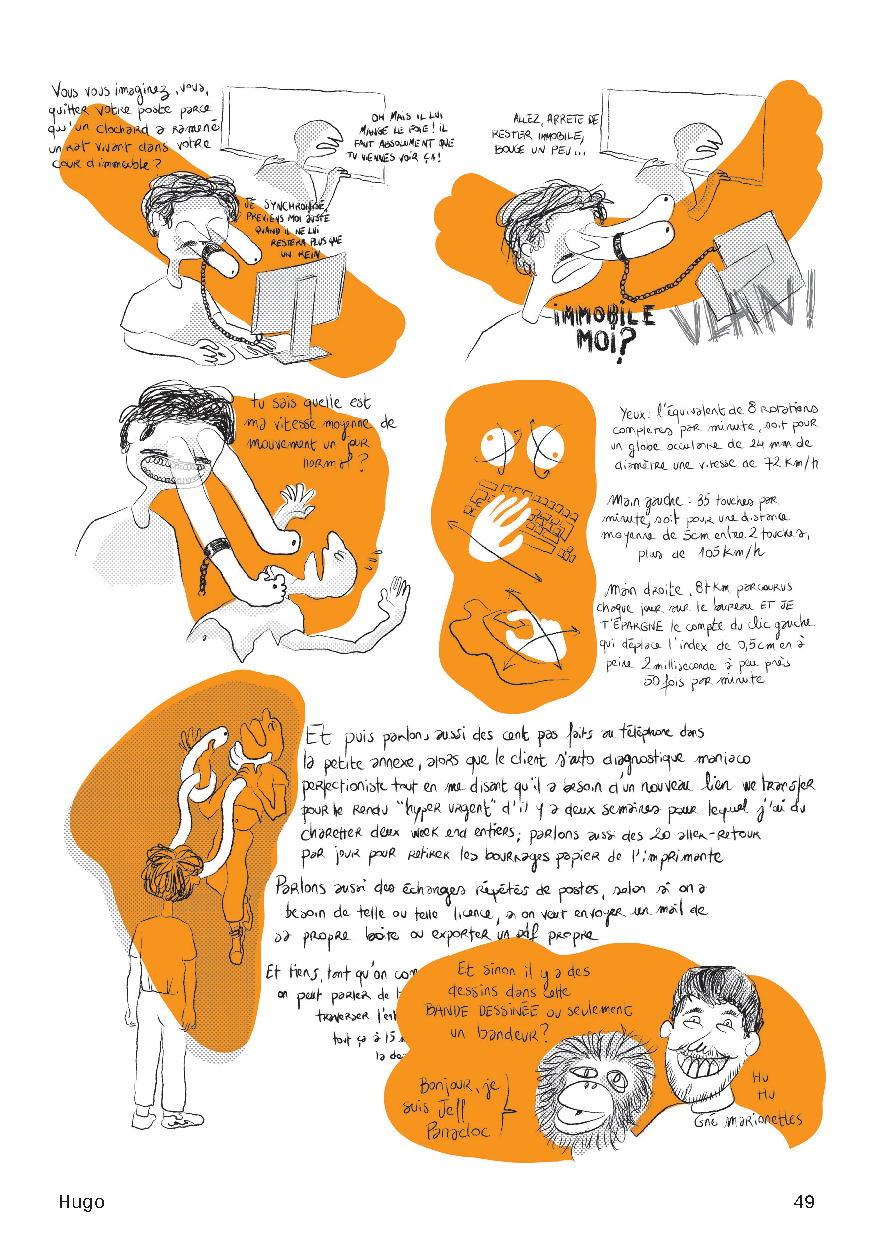 Vous vous imaginez, vous,
quitter votre poste parce
qu'un clochard a ramené
un rat vivant dans votre
cour d'immeuble ?
OH MAIS IL LUI
MANGE LE FOIE ! IL
FAUT ABSOLUMENT QUE
TU VIENNES VOIR ÇA !
JE SYNCHRONISE,
PREVIENS MOI JUSTE
QUAND IL NE LUI
RESTERA PLUS QUE
UN REIN
ALLEZ, ARRETE DE
RESTER IMMOBILE,
BOUGE UN PEU...
IMMOBILE
MOI?
VLAN!
tu sais quelle est
ma vitesse moyenne de
mouvement un jour
normal ?
Yeux : l'équivalent de 8 rotations
complètes par minute, soit pour
un globe occulaire de 24 mm de
diamètre une vitesse de 72 km/h
Main gauche : 35 touches par
minute, soit pour une distance
moyenne de 5cm entre 2 touches,
plus de 105 km/h
Main droite, 87km parcourus
chaque jour sur le bureau ET JE
T'ÉPARGNE le compte du clic gauche
qui déplace l'index de 0,5cm en à
peine 2 milliseconde à peu près
50 fois par minute
Et puis parlons aussi des cent pas faits au téléphone dans
la petite annexe, alors que le client s'auto diagnostique maniaco
perfectioniste tout en me disant qu'il a besoin d'un nouveau lien we transfer
pour le rendu "hyper urgent" d'il y a deux semaines pour lequel j'ai du
charetter deux week end entiers; parlons aussi des 20 aller-retour
par jour pour retirer les bourrages papier de l'imprimante
Parlons aussi des échanges répétés de postes, selon si on a
besoin de telle ou telle licence, si on veut envoyer un mail de
sa propre boîte ou exporter un pdf propre
Et tiens, tant qu'on
on peut parler de
traverser
tout ça à 15
Et sinon il y a des
dessins dans cette
BANDE DESSINÉE ou seulement
un bandeur ?
Bonjour, je
suis Jeff
Panacloc
HU
HU
Gné marionettes
Hugo
49